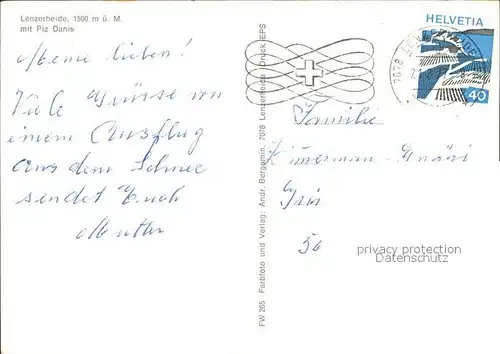 Lenzerheide, 1500 m ü. M.
mit Piz Danis
Meine lieben!
Viele Grüsse von
einem Ausflug
aus dem Schnee
sendet Euch
Mutter
FW 265 Farbfoto und Verlag: Andr. Bergamin, 7078 Lenzerheide / Druck: EPS
HELVETIA
40
7078
Familie
56
privacy protection
oldthing.com